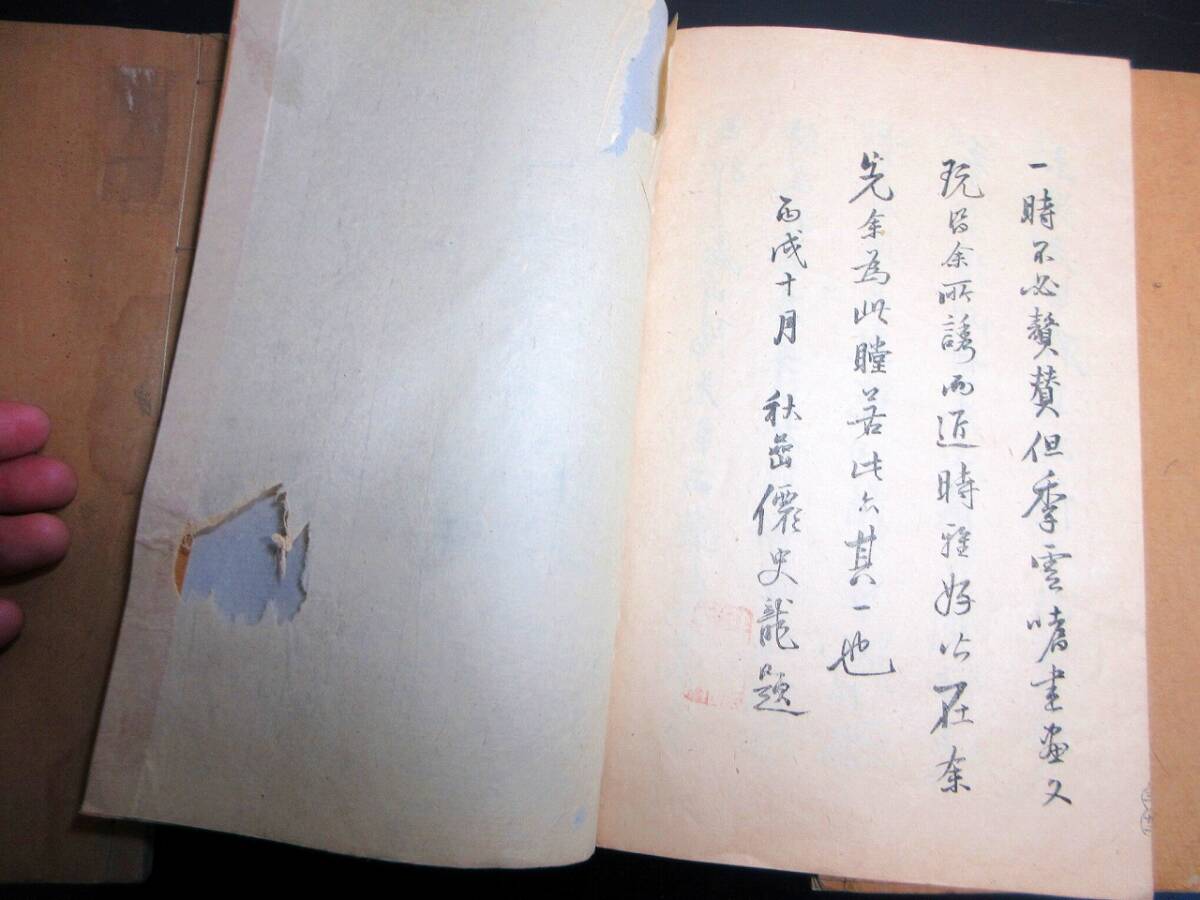 一時不必贅賛但季雲嗜書畫文
玩皆余所誘而近時雅好必在余
先余為此瞠若此亦其一也
丙戌十月 秋嵒僊史龍題